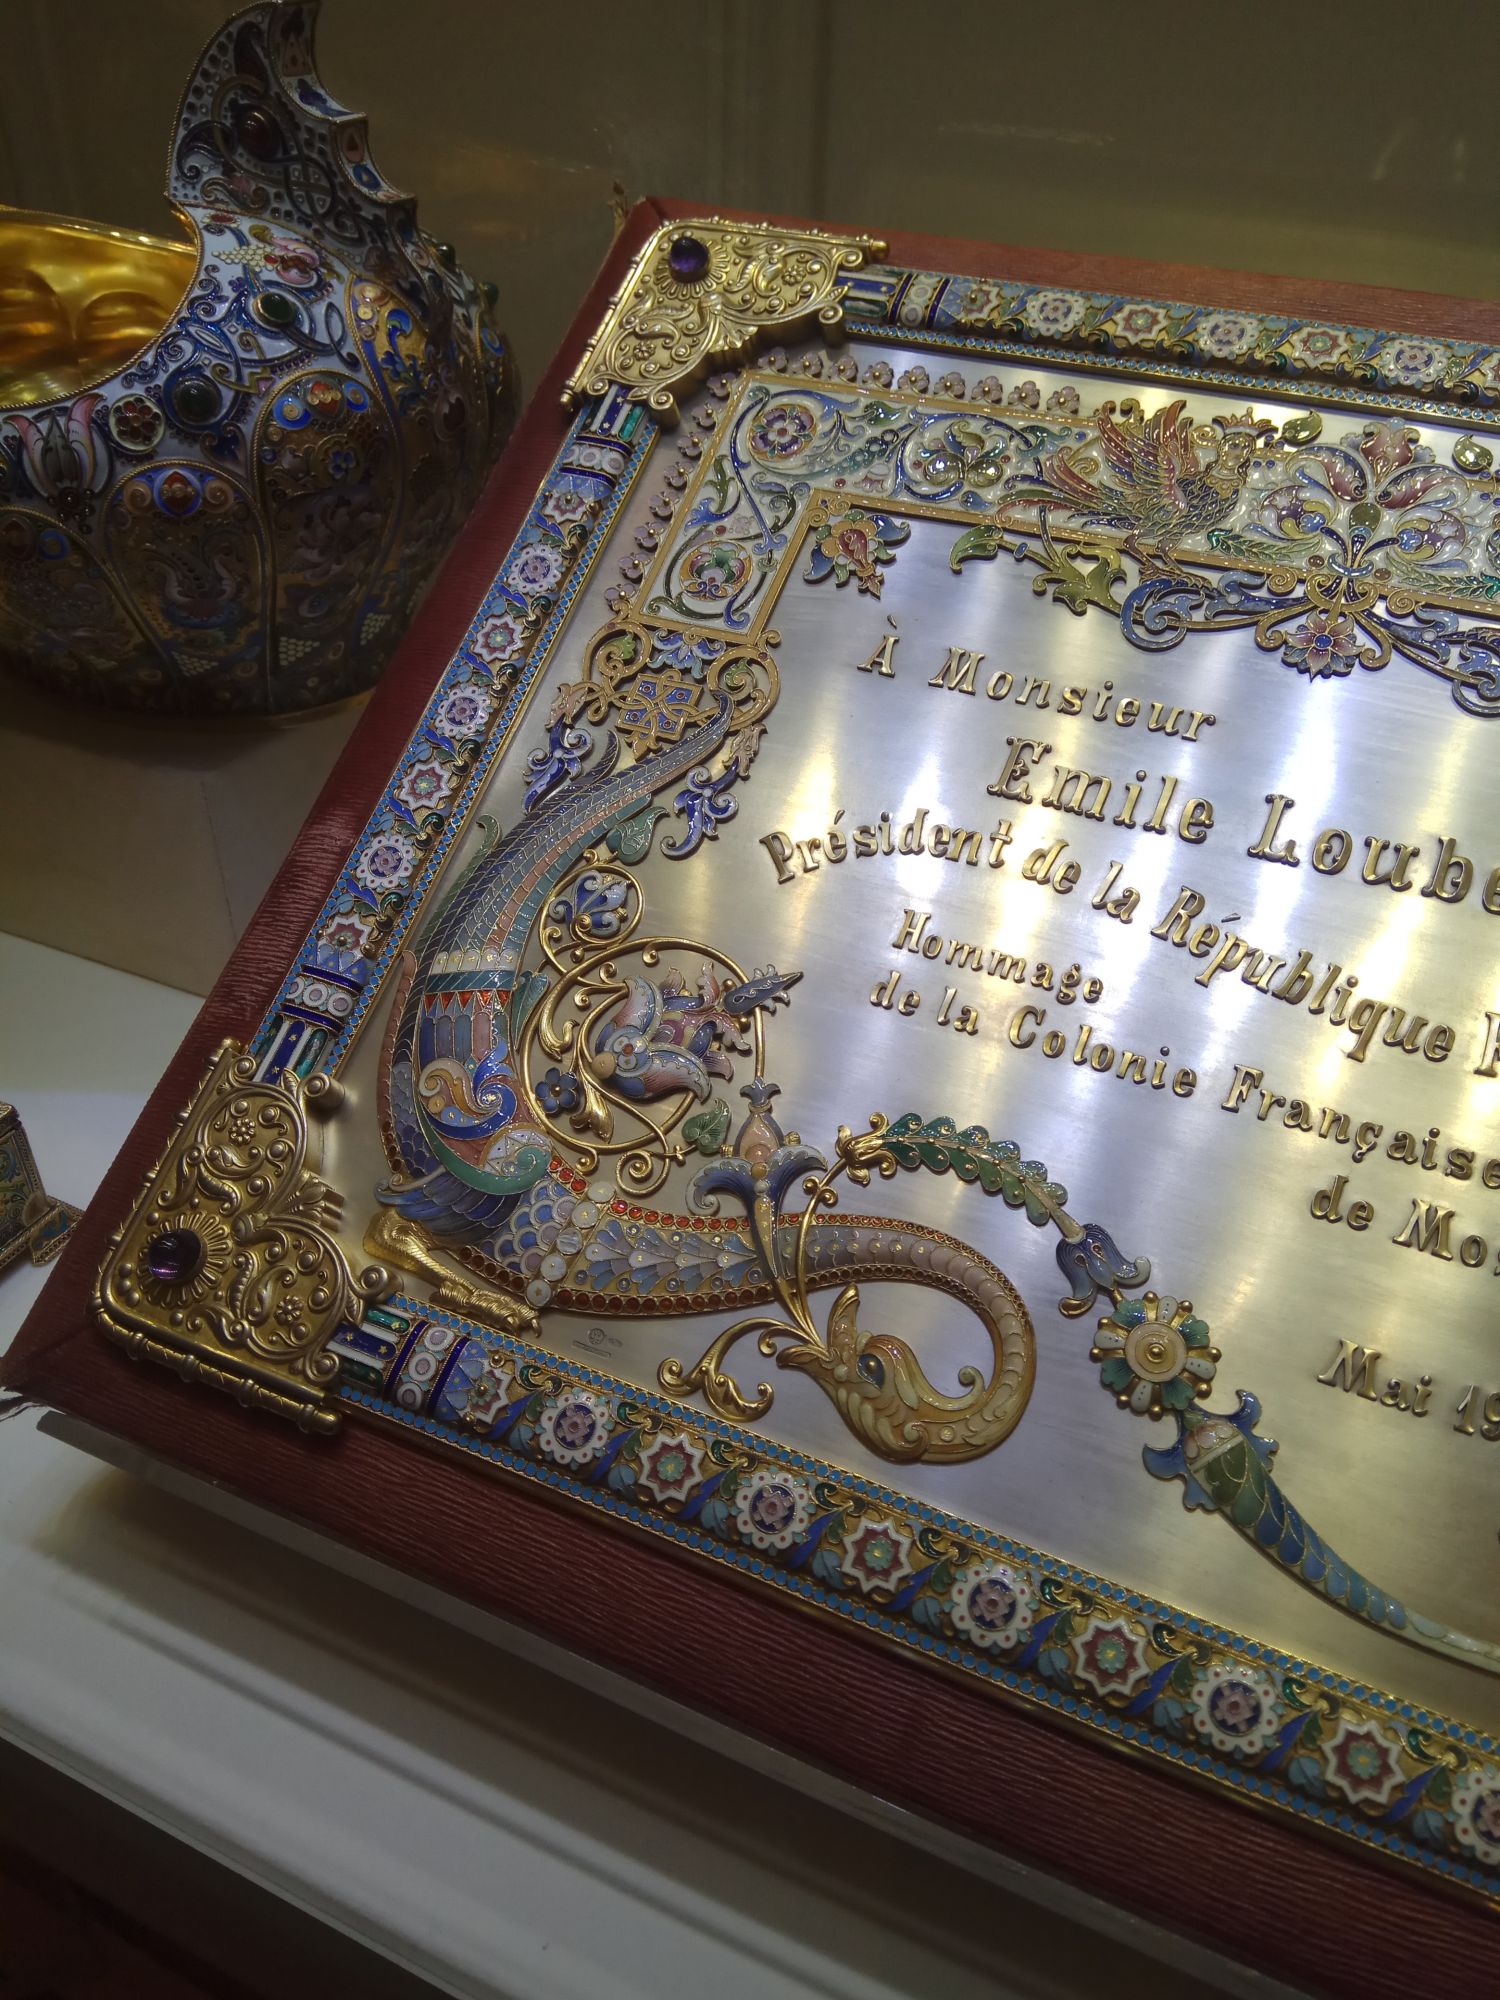 À Monsieur
Emile Loube
Président de la République F
Hommage
de la Colonie Française
de Mos
Mai 19